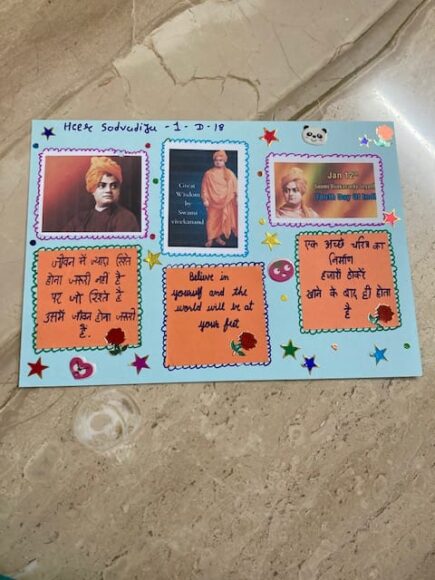 Heer Sodvadiya - 1 - D - 18
Great
Wisdom
by
Swami
vivekanand
Jan 12th
Swami Vivekananda Jayanti
Youth Day Of Indi
जीवन में ज्यादा रिश्ते
होना जरूरी नहीं है
पर जो रिश्ते है
उसमें जीवन होना जरूरी
है.
Believe in
yourself and the
world will be at
your feet
एक अच्छे चरित्र का
निर्माण
हजारों ठोकरें
खाने के बाद ही होता
है